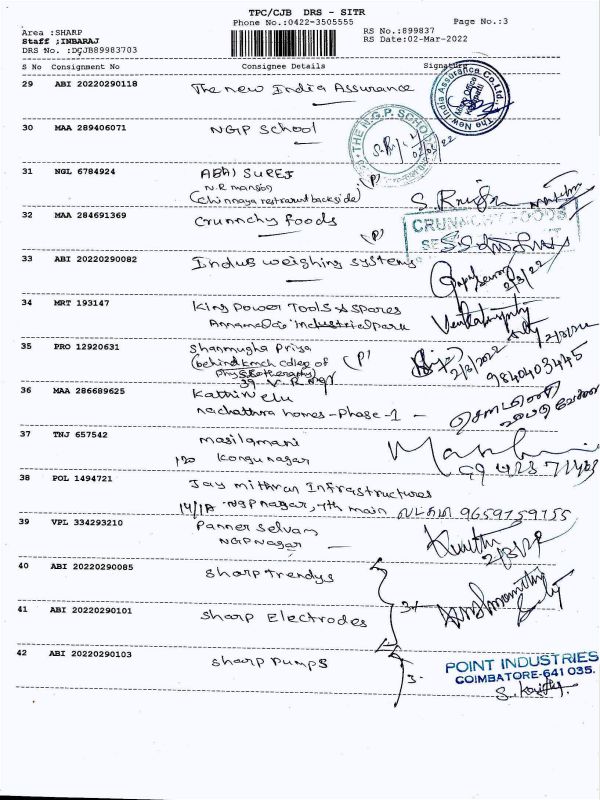 TPC/CJB DRS - SITR
Phone No.:0422-3505555
Page No.:3
Area :SHARP
Staff :INBARAJ
DRS No. :DCJB89983703
RS No.:899837
RS Date:02-Mar-2022
S No Consignment No Consignee Details Signature
29 ABI 20220290118 The new India Assurance
The New India Assurance Co.Ltd.,
30 MAA 289406071 NGP School
THE N.G.P. SCHOOL
31 NGL 6784924 ABHI SURESH
N.R mansion
(Chinnaya restraurant backside) (P)
32 MAA 284691369 Crunnchy foods
(P) CRUNNCHY FOODS
33 ABI 20220290082 Indus weighing systems
2/3/22
34 MRT 193147 King Power Tools & Spares
Annamalai Industrial park
35 PRO 12920631 Shanmugha Priya (P)
(behind kmch college of
Physiotheraphy)
39 V.R. Ngr
2/3/2022
9840403445
36 MAA 286689625 Kathir velu
nachathra homes - Phase - 1 -
37 TNJ 657542 masilamani
120 Kongu nagar
38 POL 1494721 Jay mithran Infrastructures
14/1A NGP nagar, 7th main 9659759755
39 VPL 334293210 Panner selvam
NGP Nagar
40 ABI 20220290085 Sharp trendys
41 ABI 20220290101 Sharp Electrodes
42 ABI 20220290103 Sharp Pumps
POINT INDUSTRIES
COIMBATORE-641 035.